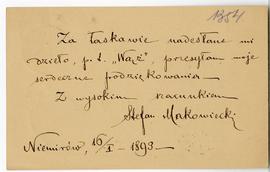 1354
Za łaskawie nadesłane mi
dzieło, p. t. „Wąż”, przesyłam moje
serdeczne podziękowania -
Z wysokim szacunkiem
Stefan Makowiecki
Niemirów, 16/I - 1893 -